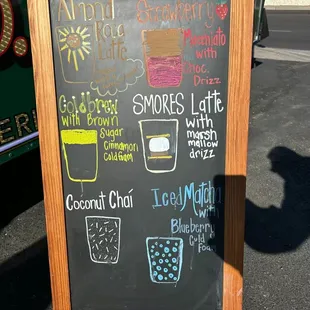 Almond
Roca
Latte
Strawberry
Mocha
with
Choc.
Drizz
Coldbrew
with Brown
Sugar
Cinnamon
Coldfoam
SMORES Latte
with
marsh
mellow
drizz
Coconut Chai
Iced Matcha
with
Blueberry
Cold
Foam